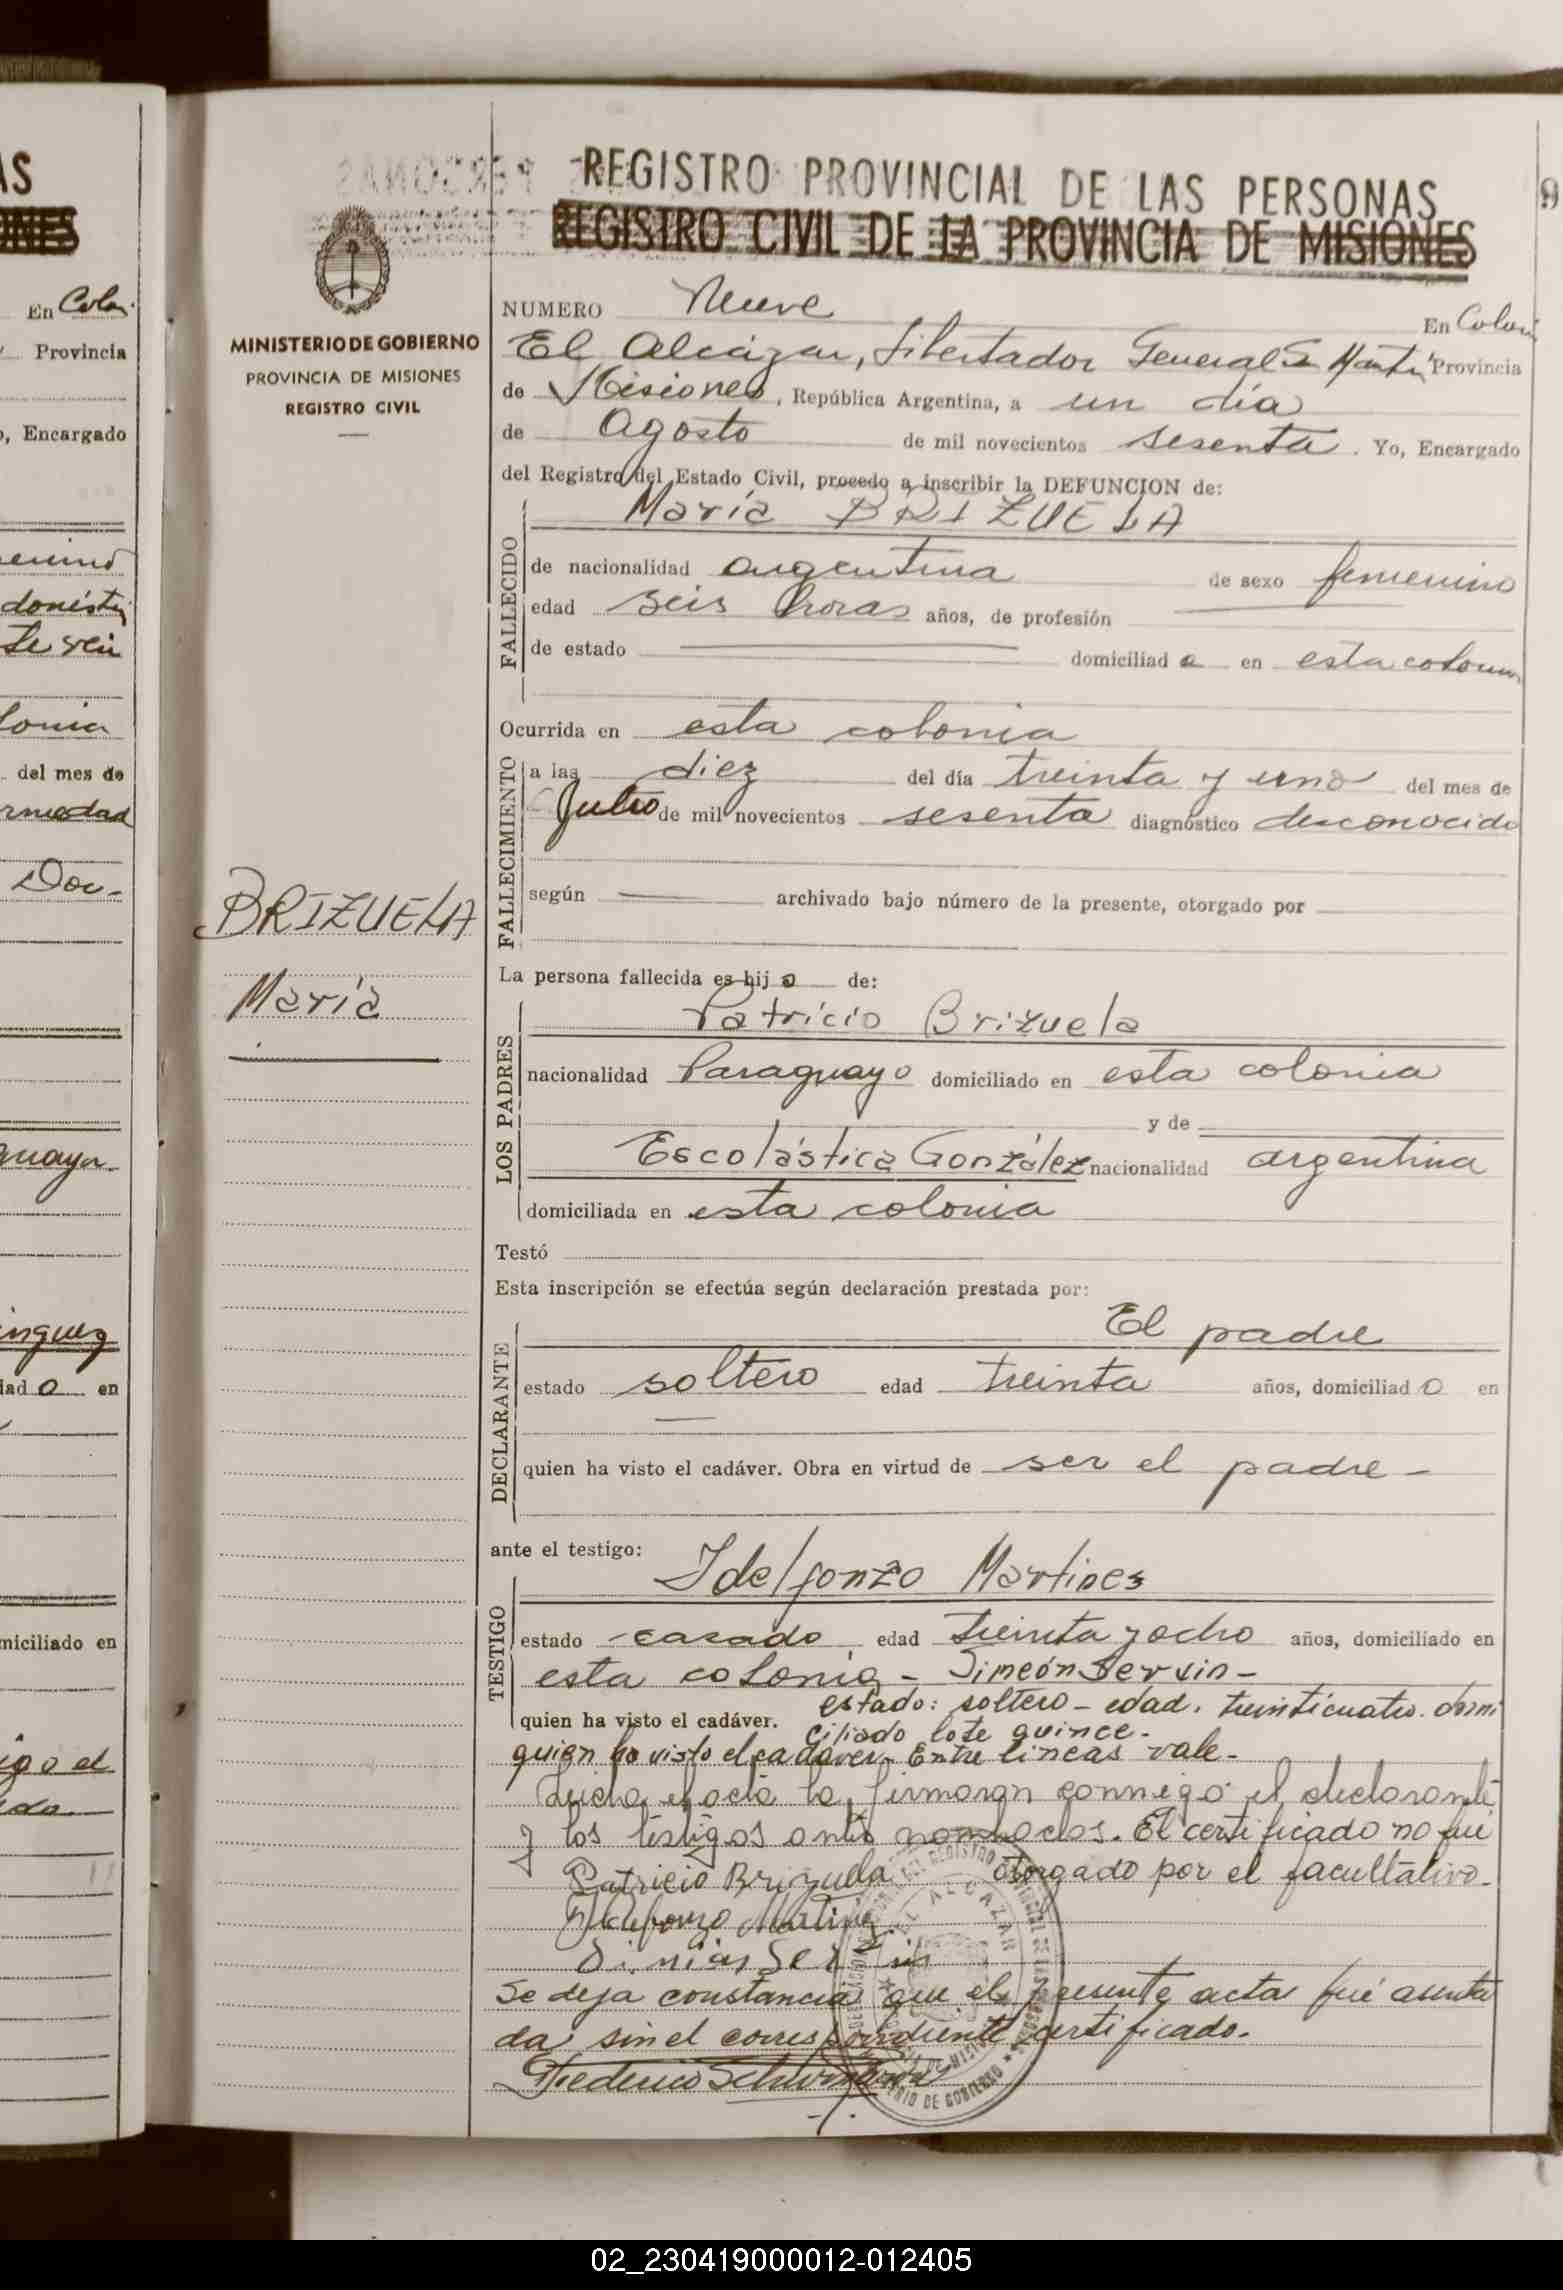 REGISTRO PROVINCIAL DE LAS PERSONAS
REGISTRO CIVIL DE LA PROVINCIA DE MISIONES
MINISTERIO DE GOBIERNO
PROVINCIA DE MISIONES
REGISTRO CIVIL
NUMERO Nueve En Coloni
El Alcázar, Libertador General Sn Martin Provincia
de Misiones, República Argentina, a un día
de Agosto de mil novecientos sesenta. Yo, Encargado
del Registro del Estado Civil, procedo a inscribir la DEFUNCION de:
FALLECIDO
María BRIZUELA
de nacionalidad argentina de sexo femenino
edad seis horas años, de profesión
de estado domiciliad a en esta colonia
Ocurrida en esta colonia
FALLECIMIENTO
a las diez del día treinta y uno del mes de
Julio de mil novecientos sesenta diagnóstico desconocido
según archivado bajo número de la presente, otorgado por
BRIZUELA
María
La persona fallecida es hij a de:
LOS PADRES
Patricio Brizuela
nacionalidad Paraguayo domiciliado en esta colonia
y de
Escolástica González nacionalidad argentina
domiciliada en esta colonia
Testó
Esta inscripción se efectúa según declaración prestada por:
DECLARANTE
El padre
estado soltero edad treinta años, domiciliad o en
quien ha visto el cadáver. Obra en virtud de ser el padre -
ante el testigo:
TESTIGO
Idelfonzo Martines
estado casado edad treinta y ocho años, domiciliado en
esta colonia - Simeón Servin -
estado: soltero - edad. treinticuatro. domi
quien ha visto el cadáver. ciliado lote quince -
quien ha visto el cadaver. Entre lineas vale -
Leida el acta la firmaran conmigo el declarante
y los testigos antes nombrados. El certificado no fue
Patricio Brizuela otorgado por el facultativo.
Se deja constancia que el presente acta fué asenta
da sin el correspondiente certificado.
EL ALCAZAR
02_230419000012-012405